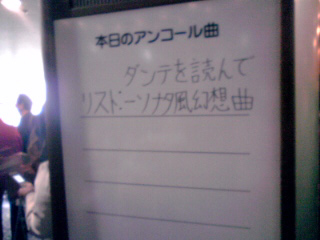 本日のアンコール曲
ダンテを読んで
リスト:ーソナタ風幻想曲